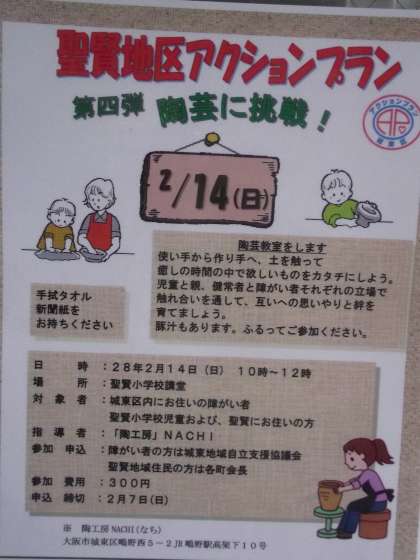 聖賢地区アクションプラン
第四弾 陶芸に挑戦！
アクションプラン
2/14(日)
陶芸教室をします
使い手から作り手へ、土を触って
癒しの時間の中で欲しいものをカタチにしよう。
児童と親、健常者と障がい者それぞれの立場で
触れ合いを通して、互いへの思いやりと絆を
育てましょう。
豚汁もあります。ふるってご参加ください。
手拭タオル
新聞紙を
お持ちください
日　　時　：２８年２月１４日（日）　１０時～１２時
場　　所　：聖賢小学校講堂
対　象　者　：城東区内にお住いの障がい者
聖賢小学校児童および、聖賢にお住いの方
指　導　者　：「陶工房」ＮＡＣＨＩ
参加　申込　：障がい者の方は城東地域自立支援協議会
聖賢地域住民の方は各町会長
参加　費用　：３００円
申込　締切　：２月７日(日)
※　陶工房 NACHI（なち）
大阪市城東区鴫野西５－２JR鴫野駅高架下１０号